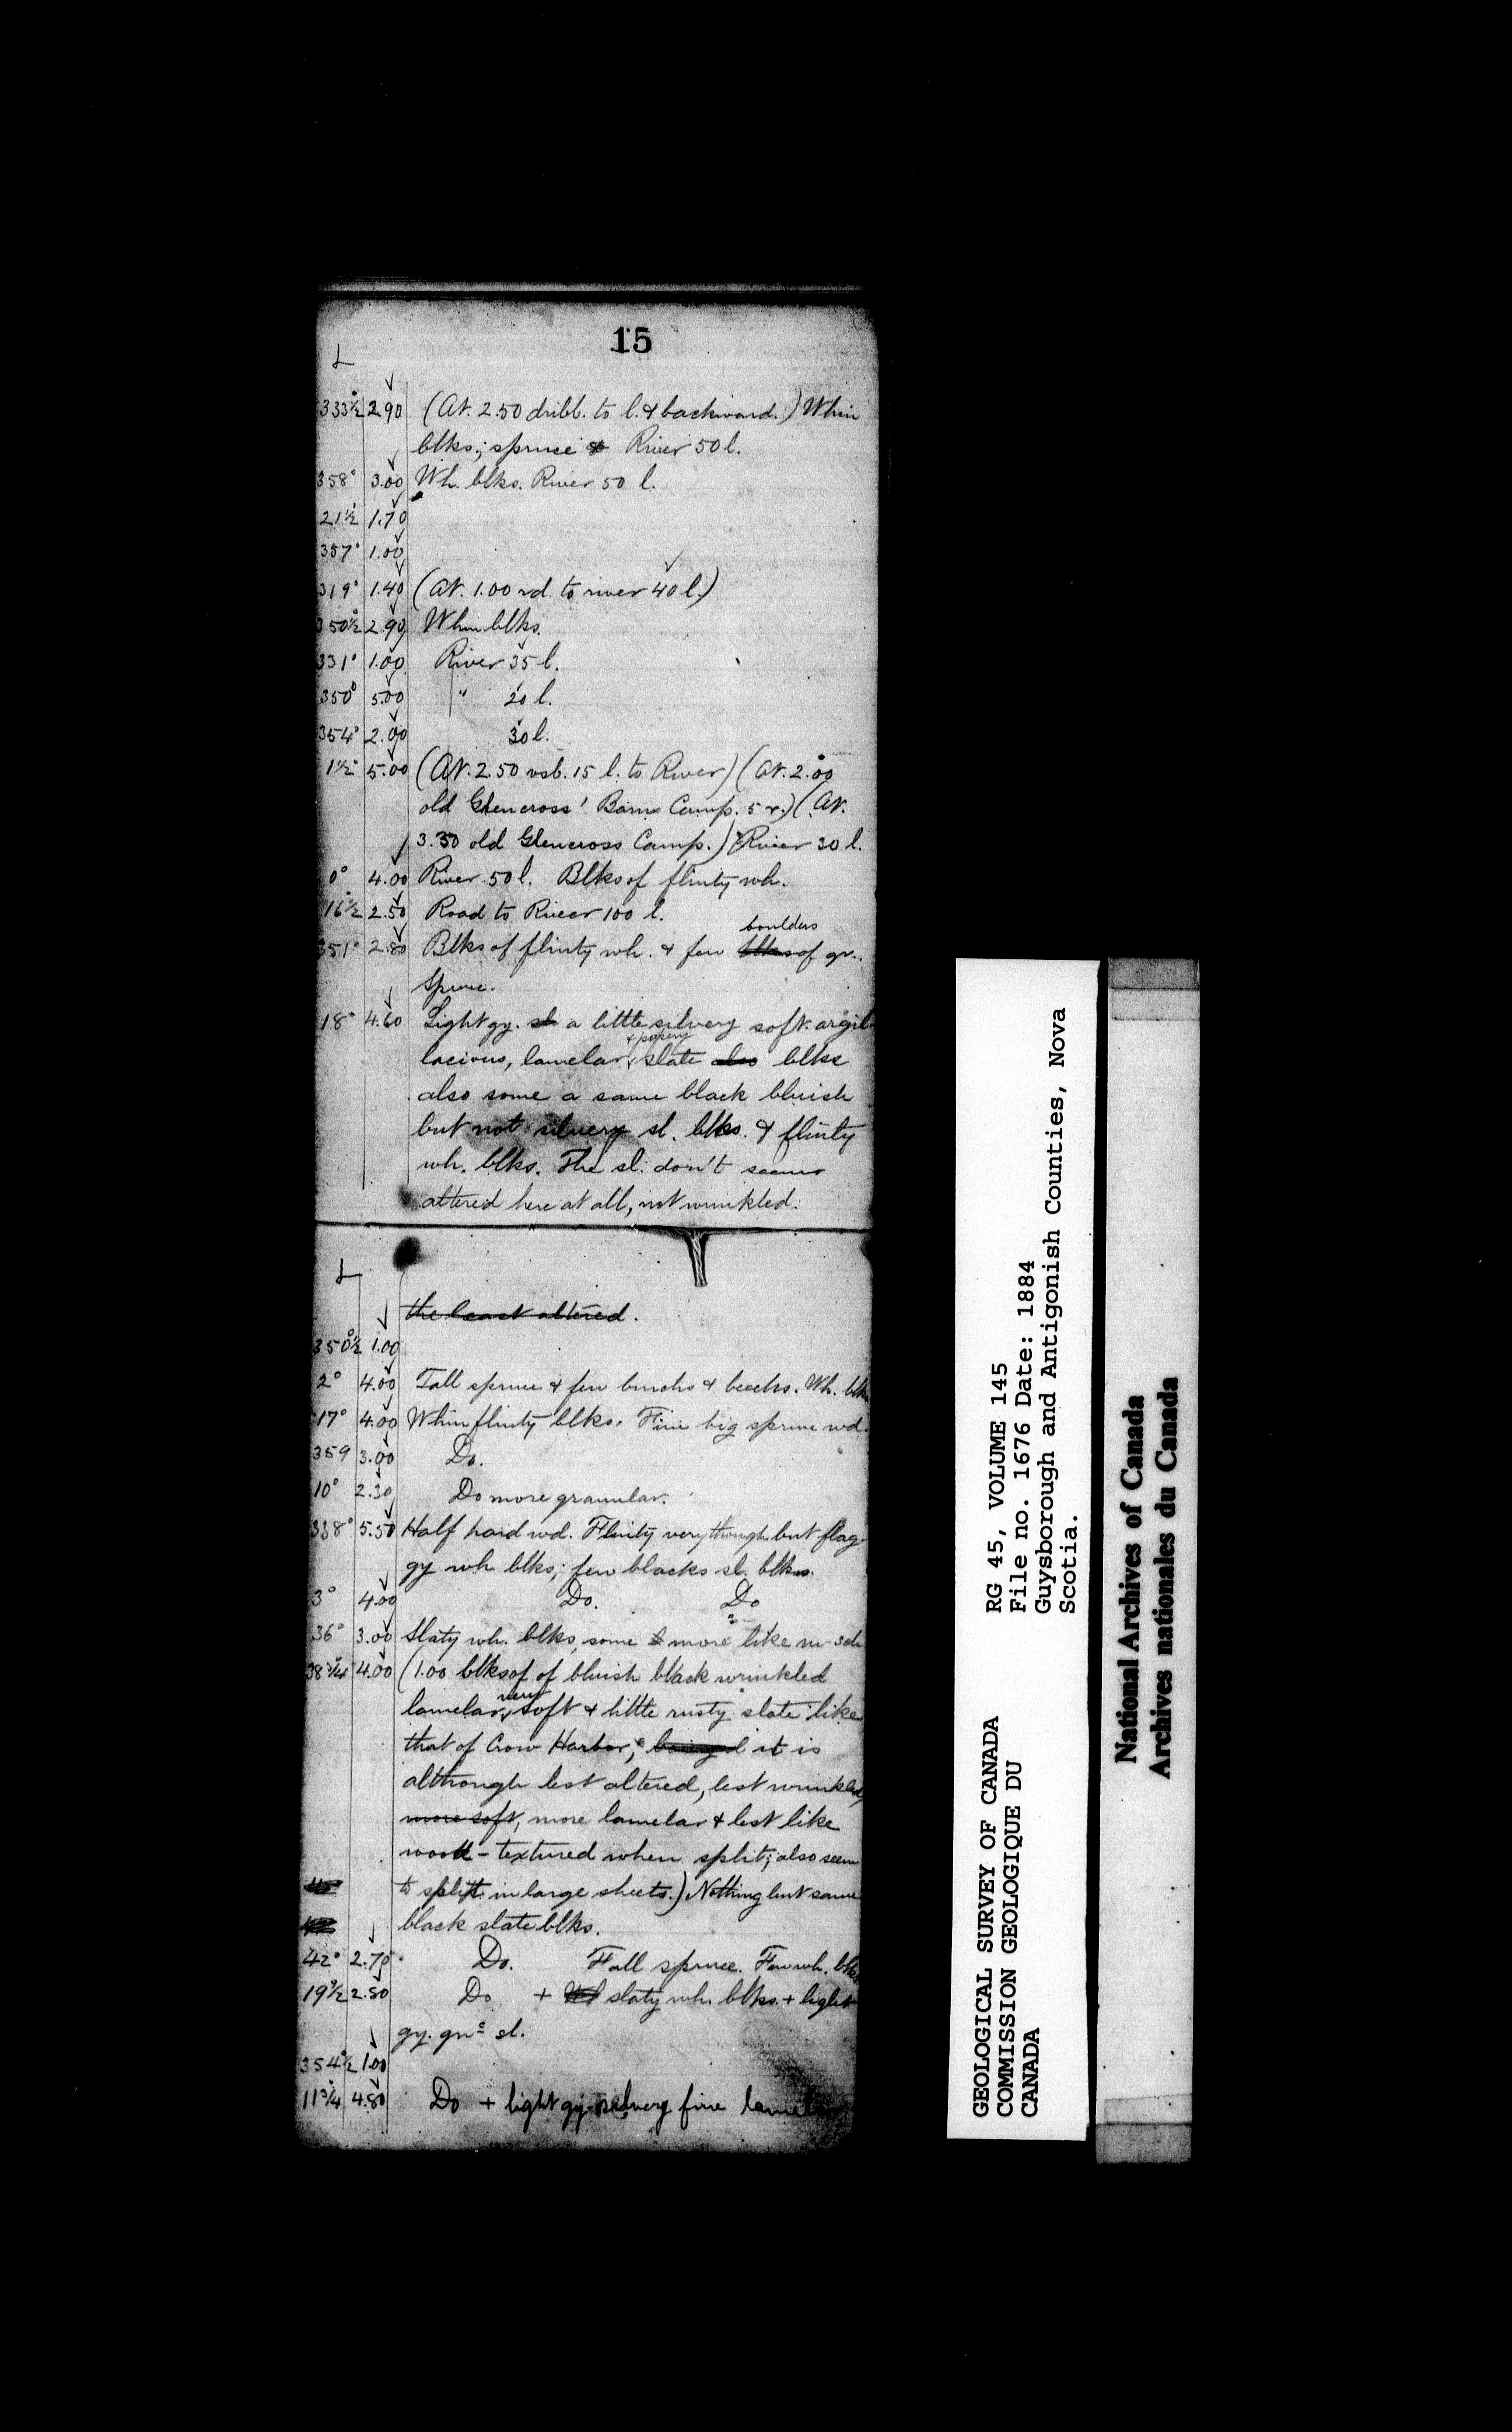 15
L
333½° 2.90 (At. 2.50 dribl. to l. & backward.) Whin
blks; spruce & River 50 l.
358° 3.00 Wh. blks. River 50 l.
21½° 1.70
357° 1.00
319° 1.40 (At. 1.00 rd. to river 40 l.)
350½° 2.90 Whin blks.
331° 1.00 River 35 l.
350° 5.00 " 20 l.
354° 2.00 30 l.
1½° 5.00 (At. 2.50 vsb. 15 l. to River) (At. 2.00
old Glencross' Barn Camp. 5 r.) (At.
3.30 old Glencross Camp.) River 30 l.
0° 4.00 River 50 l. Blks of flinty wh.
16½° 2.50 Road to River 100 l.
boulders
351° 2.80 Blks of flinty wh. & few blks of gr.
Spruce.
18° 4.60 Light gy. sl a little silvery soft argil-
lacious, lamelar, & slate also blks
also some a same black bluish
but not silvery sl. blks. & flinty
wh. blks. The sl. don't seems
altered here at all, not wrinkled.
L
the least altered.
350½° 1.00
2° 4.00 Tall spruce & few birchs & beechs. Wh. blks
17° 4.00 Whin flinty blks. Fine big spruce wd.
359 3.00 Do.
10° 2.30 Do more granular.
338° 5.50 Half hard wd. Flinty very though but flag-
gy wh blks; few blacks sl. blks.
3° 4.00 Do. Do
36° 3.00 Slaty wh. blks, some more like m-sch
38¾° 4.00 (1.00 blks of of bluish black wrinkled
very
lamelar, soft & little rusty slate like
that of Crow Harbor, it is
although lest altered, lest wrinkled,
more soft, more lamelar & lest like
wood-textured when split; also seem
to split in large sheets.) Nothing but same
black slate blks.
42° 2.70 Do. Tall spruce. Few wh. blks
19½° 2.50 Do + slaty wh. blks. + light
gy. gnˢ sl.
354½° 1.00
11¾° 4.80 Do + light gy. silvery fine lamelar
GEOLOGICAL SURVEY OF CANADA
COMMISSION GEOLOGIQUE DU
CANADA
RG 45, VOLUME 145
File no. 1676 Date: 1884
Guysborough and Antigonish Counties, Nova
Scotia.
National Archives of Canada
Archives nationales du Canada